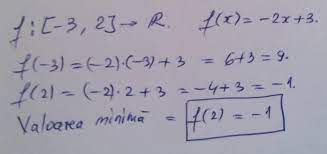 f : [-3, 2] → R. f(x) = -2x+3.
f(-3) = (-2)·(-3) + 3 = 6+3 = 9.
f(2) = (-2)·2 + 3 = -4+3 = -1.
Valoarea minimă = f(2) = -1